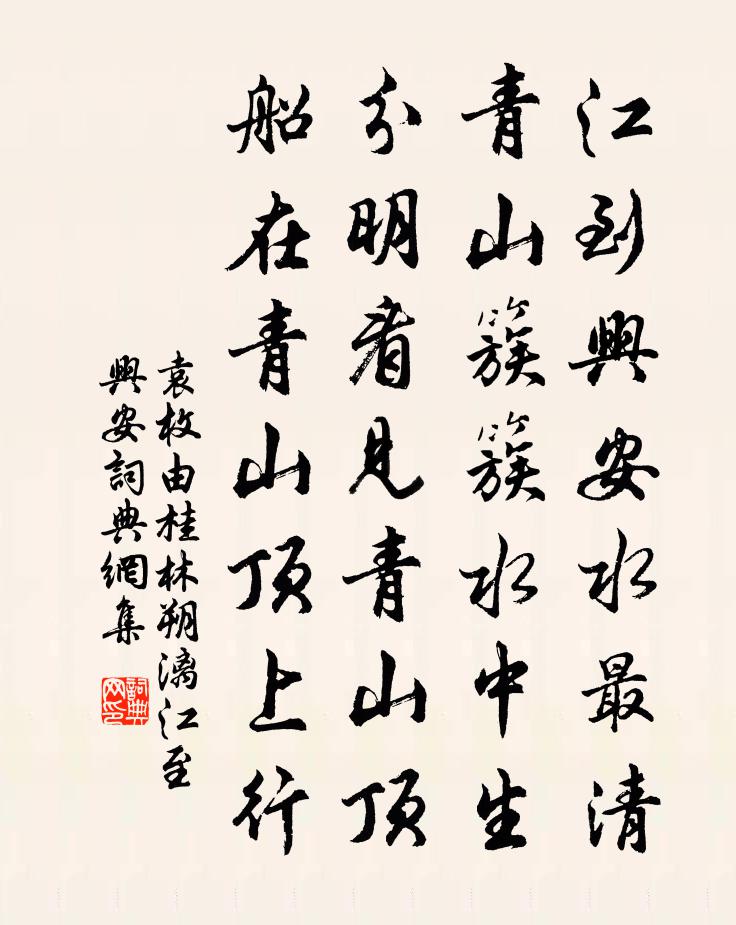 江到興安水最清
青山簇簇水中生
分明看見青山頂
船在青山頂上行
袁枚由桂林朔漓江至
興安詞典網集
詞典
网印